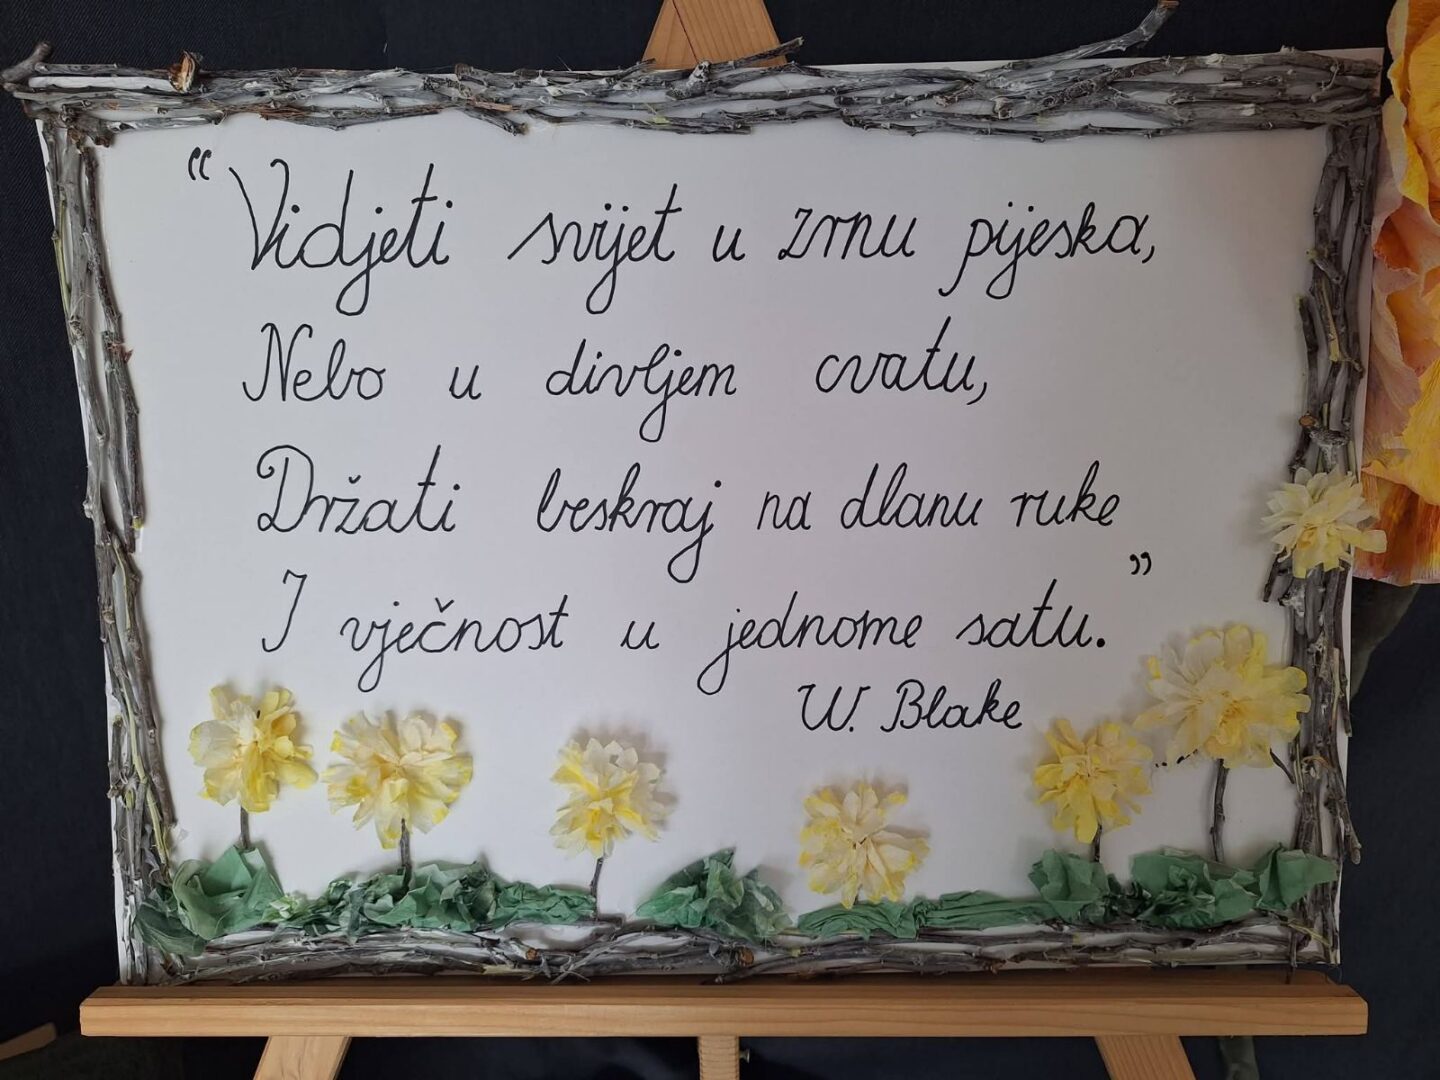 “Vidjeti svijet u zrnu pijeska,
Nebo u divljem cvatu,
Držati beskraj na dlanu ruke
I vječnost u jednome satu.”
W. Blake